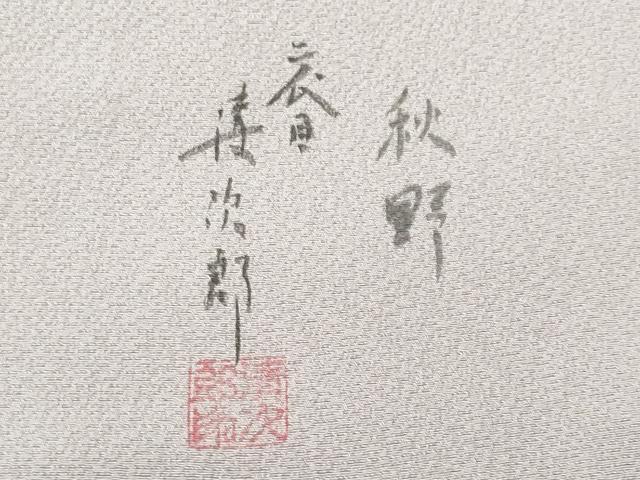 秋野
春
清次郎